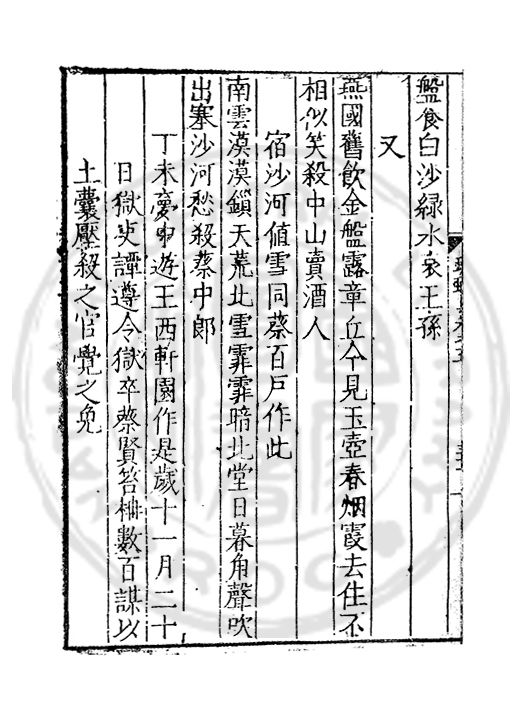 盤食白沙緑水哀王孫
又
燕國舊飲金盤露章丘今見玉壺春烟霞去住不
相似笑殺中山賣酒人
宿沙河値雪同蔡百戸作此
南雲漠漠鎖天荒北雪霏霏暗北堂日暮角聲吹
出塞沙河愁殺蔡中郎
丁未夢中遊王西軒園作是歲十一月二十
日獄吏譚遵令獄卒蔡賢笞 數百謀以
土囊壓殺之官覺之免